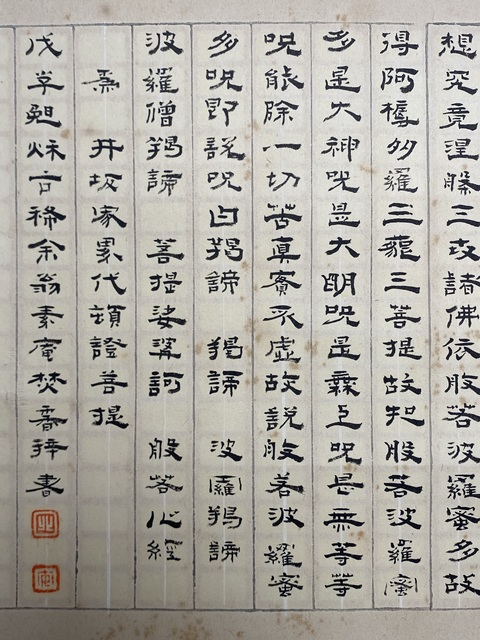 想究竟涅槃三世諸佛依般若波羅蜜多故
得阿耨多羅三藐三菩提故知般若波羅蜜
多是大神咒是大明咒是無上咒是無等等
呪能除一切苦真實不虛故說般若波羅蜜
多呪即說呪曰羯諦 羯諦 波羅羯諦
波羅僧羯諦 菩提娑婆訶 般若心經
為 井坂家累代頓證菩提
戊午秋古稀余翁素庵焚香拝書